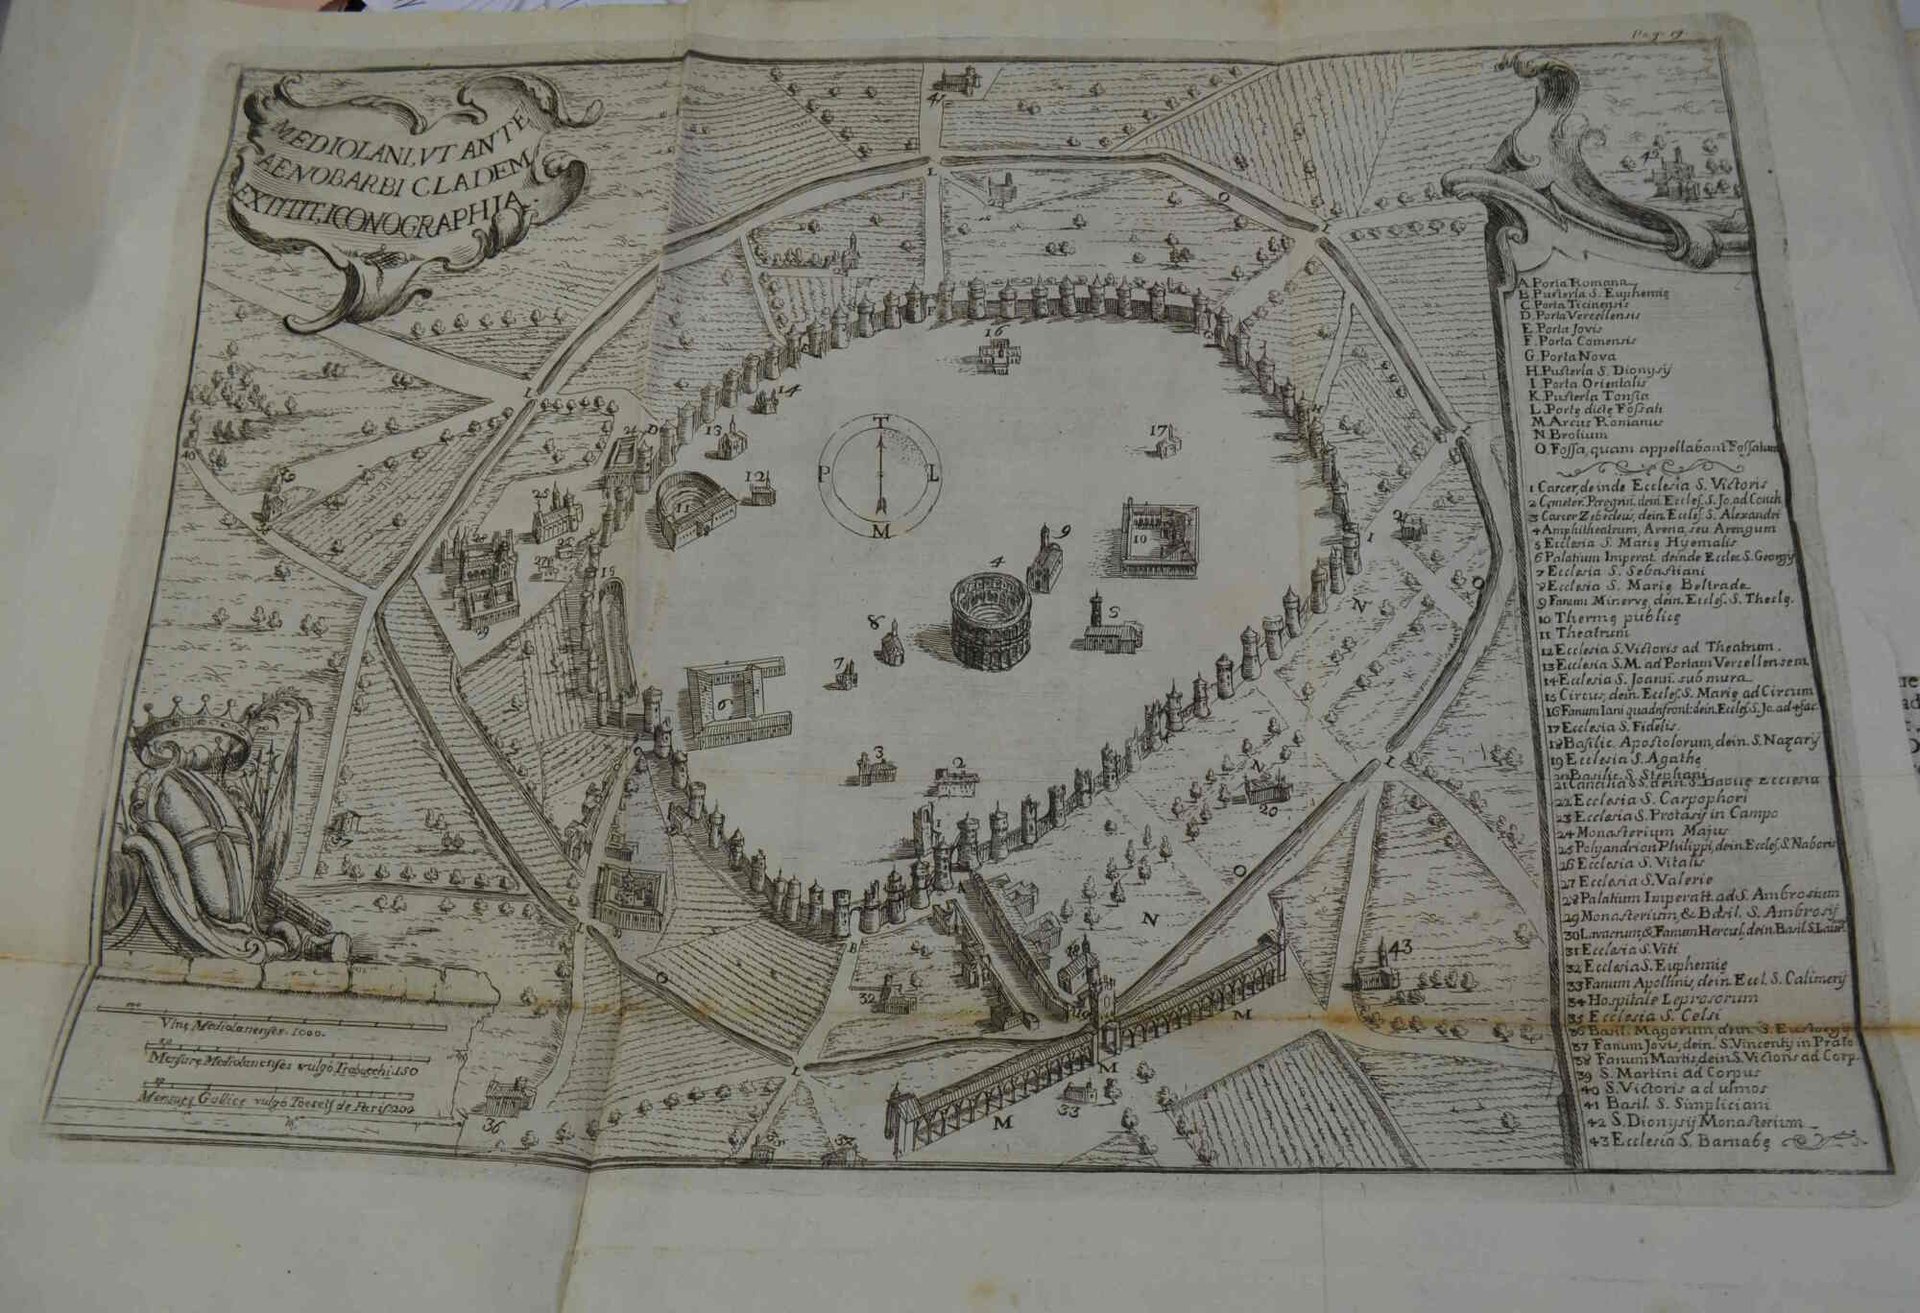 Pag. 19
MEDIOLANI, VT ANTE
AENOBARBI CLADEM
EXTITIT, ICONOGRAPHIA.
A. Porta Romana
B. Pusterla S. Euphemię
C. Porta Ticinensis
D. Porta Vercellensis
E. Porta Jovis
F. Porta Comensis
G. Porta Nova
H. Pusterla S. Dionysij
I. Porta Orientalis
K. Pusterla Tonsia
L. Portę dictę Fossati
M. Arcus Romanus
N. Brolium
O. Fossa, quam appellabant Fossatum
1 Carcer, deinde Ecclesia S. Victoris
2 Cœmeter. Peregrin. dein. Eccles. S. Jo. ad Conch
3 Carcer Zebedeus, dein. Eccles. S. Alexandri
4 Amphitheatrum, Arena, seu Arengum
5 Ecclesia S. Marię Hyemalis
6 Palatium Imperat. deinde Eccles. S. Georgij
7 Ecclesia S. Sebastiani
8 Ecclesia S. Marię Beltrade
9 Fanum Minervę, dein. Eccles. S. Theclę.
10 Thermę publicę
11 Theatrum
12 Ecclesia S. Victoris ad Theatrum.
13 Ecclesia S. M. ad Portam Vercellensem
14 Ecclesia S. Joann. sub mura
15 Circus, dein. Eccles. S. Marię ad Circum
16 Fanum Iani quadrifront. dein. Eccles. S. Jo. ad 4 fac.
17 Ecclesia S. Fidelis.
18 Basilic. Apostolorum, dein. S. Nazarij
19 Ecclesia S. Agathę
20 Basilic. S. Stephani
21 Concilia SS. dein. S. Babilę Ecclesia
22 Ecclesia S. Carpophori
23 Ecclesia S. Protasij in Campo
24 Monasterium Majus
25 Polyandrion Philippi, dein. Eccles. S. Naboris
26 Ecclesia S. Vitalis
27 Ecclesia S. Valerię
28 Palatium Imperatt. ad S. Ambrosium
29 Monasterium, & Basil. S. Ambrosij
30 Lavacrum, & Fanum Hercul. dein. Basil. S. Laur.
31 Ecclesia S. Viti
32 Ecclesia S. Euphemię
33 Fanum Apollinis, dein. Eccl. S. Calimerij
34 Hospitale Leprosorum
35 Ecclesia S. Celsi
36 Basil. Magorum dein. S. Eustorgij
37 Fanum Jovis, dein. S. Vincentij in Prato
38 Fanum Martis, dein. S. Victoris ad Corp.
39 S. Martini ad Corpus
40 S. Victoris ad ulmos
41 Basil. S. Simpliciani
42 S. Dionysij Monasterium
43 Ecclesia S. Barnabę
T
P L
M
Vlnę Mediolanenses. 1000.
Mensurę Mediolanenses vulgo Trabucchi. 150
Mensurę Gallicę vulgo Toesels de Paris 200